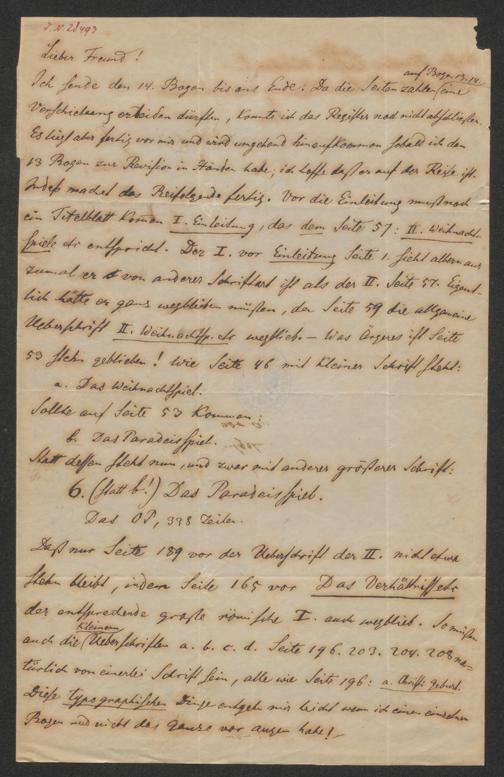 I. N. 28493
Lieber Freund!
auf Bogen 13. 14.
Ich sende den 14. Bogen bis ans Ende. Da die Seitenzahlen eine
Verschiebung erleiden dürften, konnte ich das Register noch nicht abschließen.
Es liegt aber fertig vor mir und wird umgehend hinaufkommen sobald ich den
13 Bogen zur Revision in Händen habe; ich hoffe daß er auf der Reise ist.
Indeß machet das Beifolgende fertig. Vor die Einleitung muß noch
ein Titelblatt kommen I. Einleitung, das dem Seite 57: II. Weihnacht-
spiele etc entspricht. Der I. vor Einleitung Seite 1. sieht albern aus
zumal er von anderer Schriftart ist als der II. Seite 57. Eigent-
lich hätte er ganz wegbleiben müßen, da Seite 59 die allgemeine
Ueberschrift II. Weihnachtsp. etc wegblieb – Was Ärgeres ist Seite
53 stehn geblieben! Wie Seite 46 mit kleiner Schrift steht:
a. Das Weihnachtspiel.
Sollte auf Seite 53 kommen:
b. Das Paradeisspiel.
Statt dessen steht nun, und zwar mit anderer größerer Schrift:
6. (statt b!) Das Paradeisspiel.
Das OP, 338 Zeilen.
Daß nur Seite 189 vor der Ueberschrift der II. nicht etwa
stehn bleibt, indem Seite 165 vor Das Verhältniss etc
der entsprechende große römische I. auch wegblieb. So müßen
kleinern
auch die Ueberschriften a. b. c. d. Seite 196. 203. 204. 208 na-
türlich von einerlei Schrift sein, alle wie Seite 196: a. Christi Geburt.
Diese typographischen Dinge entgehn mir leicht wenn ich einen einzelnen
Bogen und nicht das ganze vor augen habe!